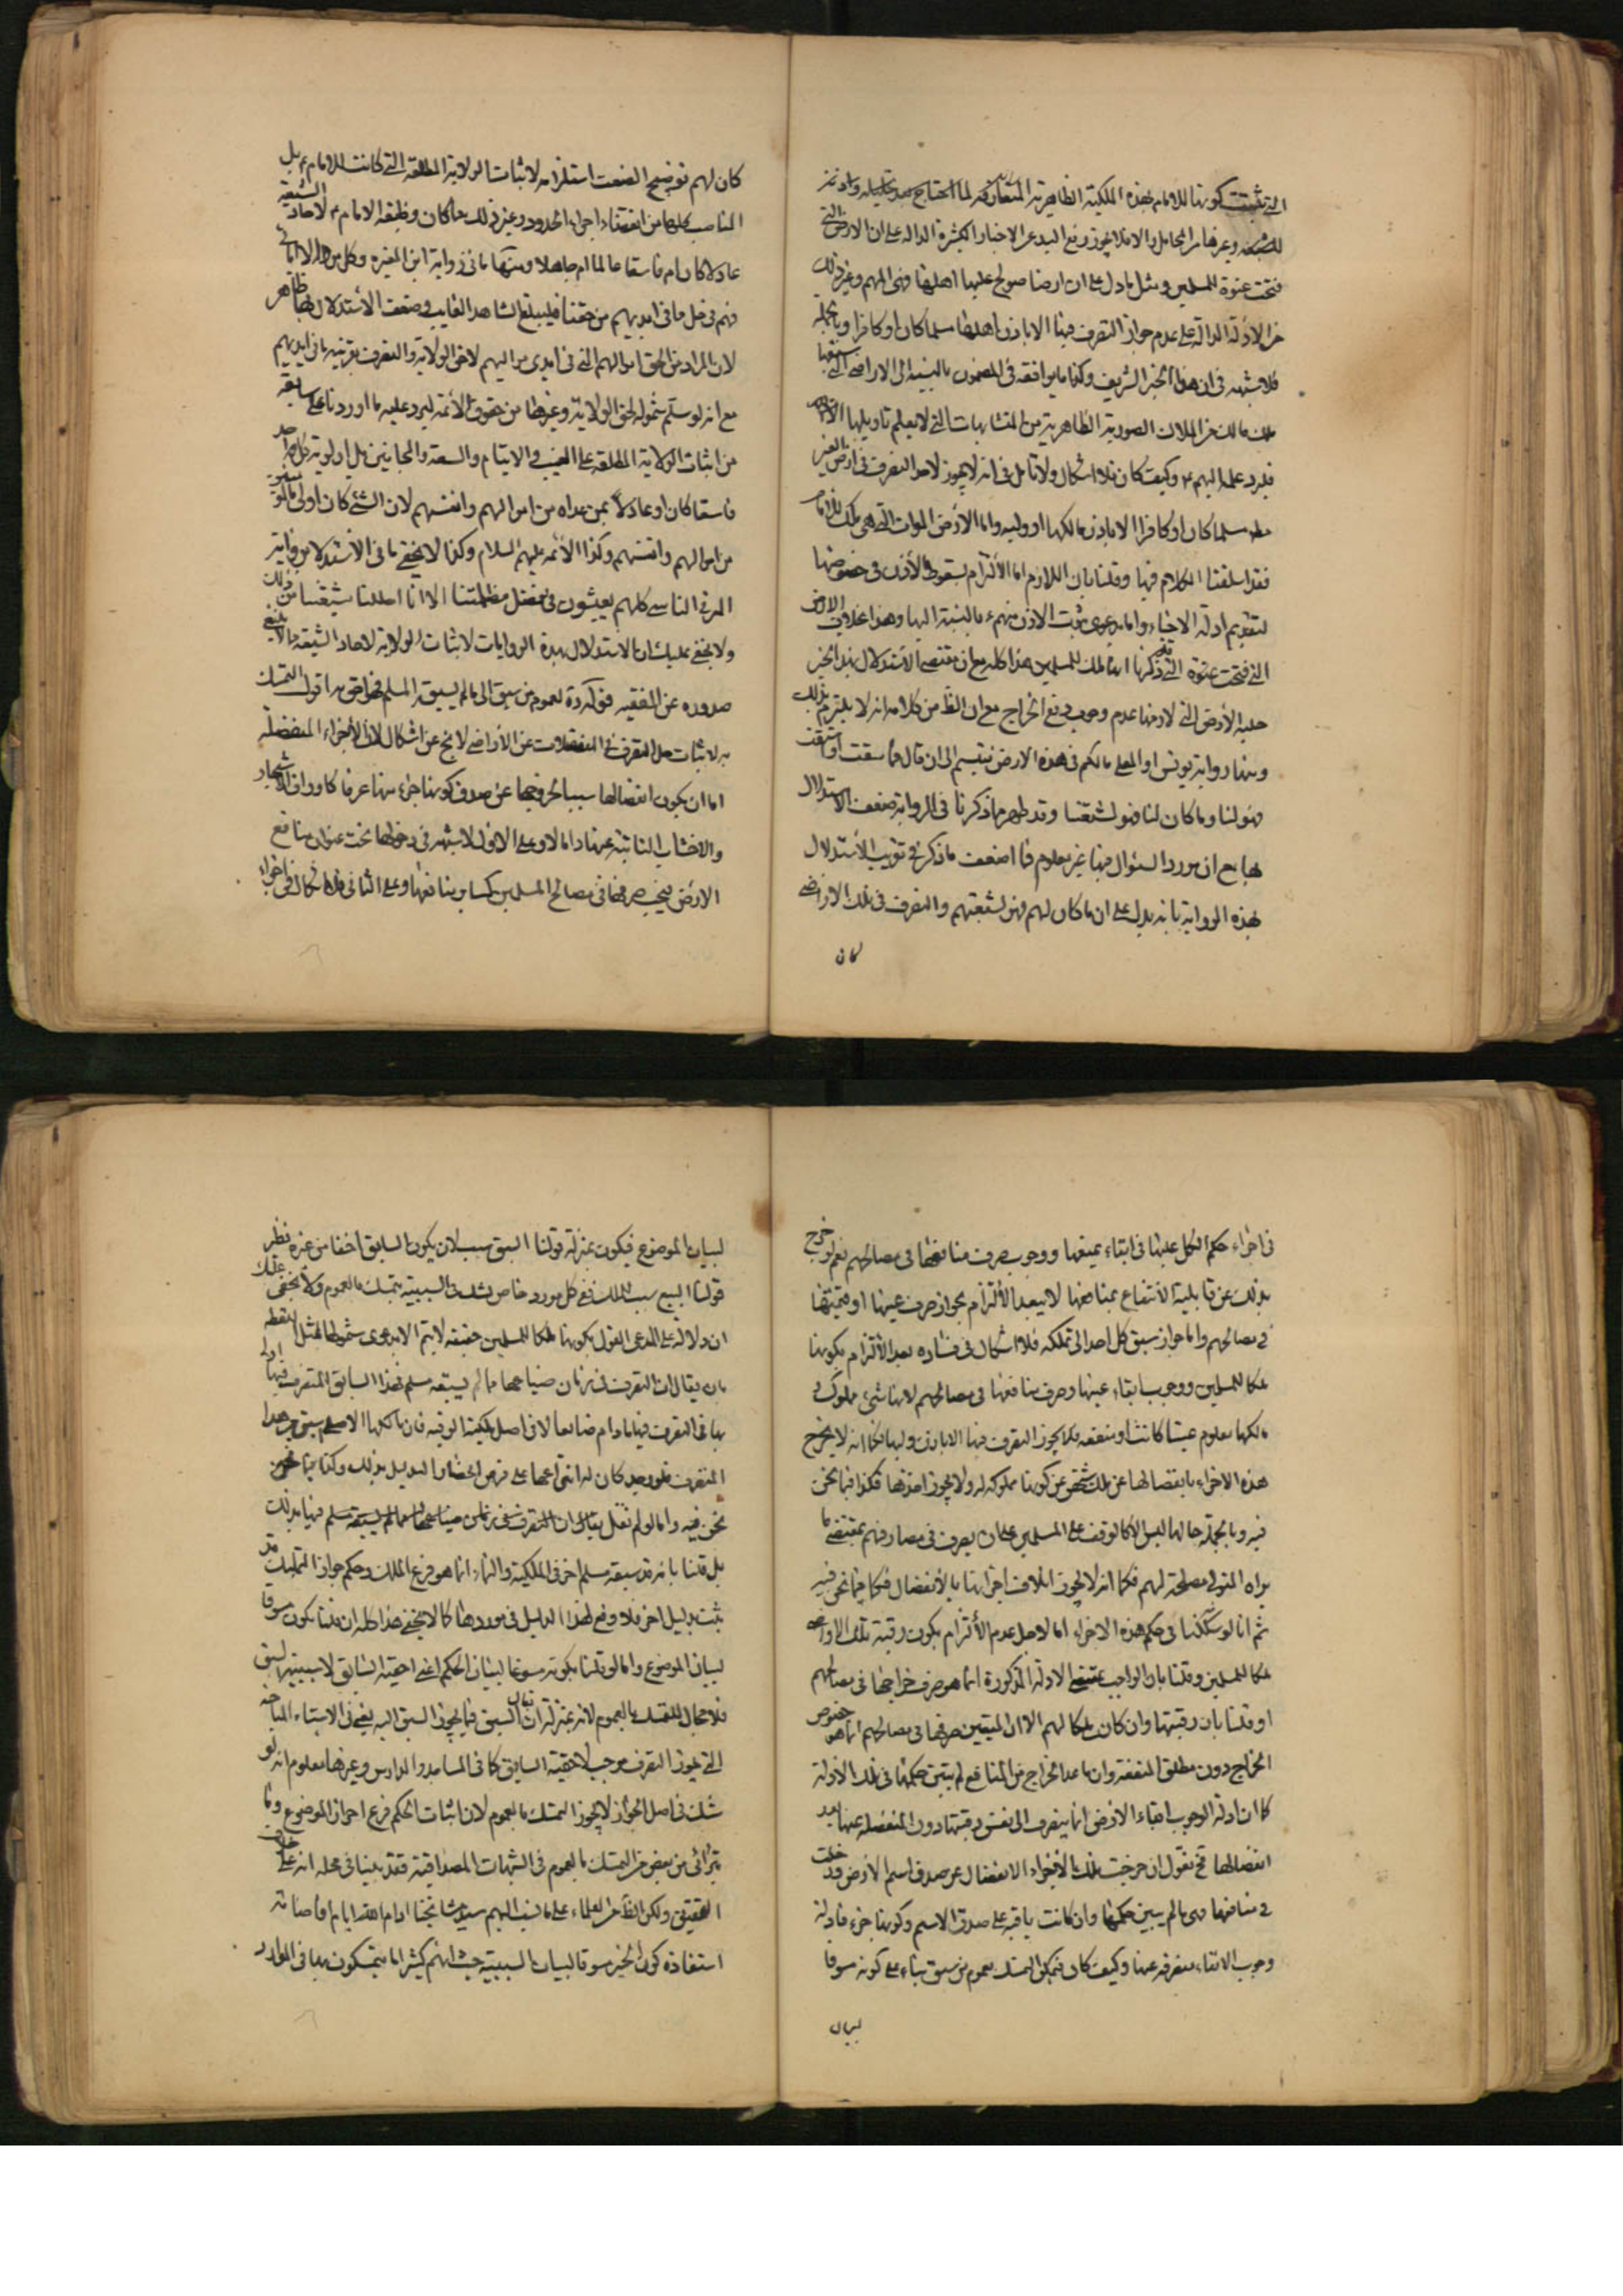 التي ثبتت كونها للامام بهذه الملكية الظاهرية المتعارفة لما احتاج
للشيعة وغيرها من المحامل والا فلا يجوز رفع اليد عن الاخبار الكثيرة الدالة على ان الارض التي
فتحت عنوة للمسلمين ومثل ما دل على ان ارضا صولح عليها اهلها فهى لهم وغير ذلك
من الادلة الدالة على عدم جواز التصرف فيها الا باذن اهلها مسلما كان او كافرا وبالجملة
فلا شبهة في ان هذا الخبر الشريف وكذا ما يوافقه في المضمون بالنسبة الى الاراضي التي
من الملاك الصورية الظاهرية من المتشابهات التي لا يعلم تاويلها الا
فليرد علمه اليهم ع وكيف كان فلا اشكال ولا تامل في انه لا يجوز لاحد التصرف في ارض الغير
مسلما كان او كافرا الا باذن مالكها او وليه واما الارض الموات التي هي ملك للامام
فقد اسلفنا الكلام فيها وقلنا بان اللازم اما الالتزام بسقوط الاذن في خصوصها
لتقديم ادلة الاحياء واما بدعوى ثبوت الاذن منهم ع بالنسبة اليها وهذا بخلاف الارض
التي فتحت عنوة التي قد ذكرنا انها ملك للمسلمين هذا كله مع ان مقتضى الاستدلال بهذا الخبر
حلية الارض التي لازمها عدم وجوب دفع الخراج مع ان الظ من كلامه انه لا يلتزم بذلك
ومنها رواية يونس او المعلى ما لكم في هذه الارض فتبسم الى ان قال فما سقت او استقت
فهو لنا وما كان لنا فهو لشيعتنا وقد ظهر مما ذكرنا في الرواية ضعف الاستدلال
بها مع ان مورد السئوال فيها غير معلوم فما اضعف ما ذكر في تقريب الاستدلال
بهذه الرواية بانه يدل على ان ما كان لهم فهو لشيعتهم والتصرف في تلك الاراضي
كان
كان لهم توضيح الضعف استلزامه لاثبات الولاية المطلقة التي كانت للامام ع بل
المناصب كلها من القضاء واجراء الحدود وغير ذلك مما كان وظيفة الامام ع لاحاد الشيعة
عادلا كان ام فاسقا عالما ام جاهلا ومنها ما في رواية ابن المغيرة وكل من والا ابائي
فهم في حل مما في ايديهم من حقنا فليبلغ الشاهد الغايب وضعف الاستدلال بها ظاهر
لان المراد من الحق اموالهم التي في ايدي مواليهم لا حق الولاية والتصرف بقرينة ما في ايديهم
مع انه لو سلم شموله لحق الولاية وغيرها من حقوق الائمة ليرد عليه ما اوردنا على سابقه
من اثبات الولاية المطلقة على الغيب والايتام والسفه والمجانين بل اولوية كل واحد
فاسقا كان او عادلا بمن عداه من اموالهم وانفسهم لان النبي ع كان اولى
من اموالهم وانفسهم وكذا الائمة عليهم السلام وكذا لا يخفى ما في الاستدلال من رواية
الناس كلهم يعيشون في فضل مظلمتنا الا انا احللنا شيعتنا من ذلك
ولا يخفى عليك ان الاستدلال بهذه الروايات لاثبات الولاية لاحاد الشيعة مما لا ينبغي
صدوره عن الفقيه قوله قدة لعموم من سبق الى ما لم يسبقه المسلم فهو احق به اقول التمسك
به لاثبات حل التصرف في المنفصلات عن الاراضي لا يخ عن اشكال لان الاجزاء المنفصلة
اما ان يكون انفصالها سببا لخروجها عن صدق كونها جزء منها عرفا كاوراق الاشجار
والاخشاب النابتة عنها واما لا وعلى الاول لا شبهة في دخولها تحت عنوان منافع
الارض فيجب صرفها في مصالح المسلمين كساير منافعها وعلى الثاني فلا اشكال في
في اجراء حكم الكل عليها في ابقاء عينها ووجوب صرف منافعها في مصالحهم نعم لو خرج
بذلك عن قابلية الانتفاع بمنافعها لا يبعد الالتزام بجواز صرف عينها او قيمتها
في مصالحهم واما جواز سبق كل احد الى تملكه فلا اشكال في فساده بعد الالتزام بكونها
ملكا للمسلمين ووجوب ابقاء عينها وصرف منافعها في مصالحهم لانها شئ مملوك
مالكها معلوم عينا كانت او منفعة فلا يجوز التصرف فيها الا باذن وليها فكما انه لا يخرج
هذه الاجزاء بانفصالها عن ملك شخص عن كونها مملوكة له ولا يجوز اخذها فكذا فيما نحن
فيه وبالجملة حالها ليس الا كالوقف على المسلمين على ان يصرف في مصارفهم بمقتضى ما
يراه المتولي مصلحة لهم فكما انه لا يجوز اتلاف اجزائها بالانفصال فكما فيما نحن فيه
ثم انا لو شككنا في حكم هذه الاجزاء اما لاجل عدم الالتزام بكون رقبة تلك الاراضي
ملكا للمسلمين وقلنا بان الواجب بمقتضى الادلة المذكورة انما هو صرف خراجها في مصالحهم
او قلنا بان رقبتها وان كان ملكا لهم الا ان المتيقن صرفها في مصالحهم انما هو خصوص
الخراج دون مطلق المنفعة وان ما عدا الخراج من المنافع لم يتبين حكمها في تلك الادلة
كما ان ادلة الوجوب ابقاء الارض انما ينصرف الى نفس رقبتها دون المنفصلة عنها بعد
انفصالها فح نقول ان خرجت تلك الاجزاء بالانفصال عن صدق اسم الارض فقد دخلت
في منافعها فهي مما لم يبين حكمها وان كانت باقية على صدق الاسم وكونها جزء فادلة
وجوب الابقاء منصرفة عنها وكيف كان فيمكن التمسك بعموم من سبق بناء على كونه مسوقا
لبيان
لبيان الموضوع فيكون بمنزلة قولنا السبق سبب لان يكون السابق احق من غيره نظير
قولنا البيع سبب الملك ففي كل مورد خاص شك في السببية يتمسك بالعموم ولا يخفى عليك
ان دلالة على المدعى القول بكونها ملكا للمسلمين حقيقة لا يتم الا بدعوى شمولها لمثل اللقطة
بان يقال ان التصرف في زمان ضياعها مما لم يسبقه مسلم فهذا السابق المتصرف فيها اولى
بها في التصرف فيها ما دام ضائعا لا في اصل ملكية الرقبة فان مالكها الاصلي سبق من هذا
المتصرف فلو وجد كان له انتزاعها على فرض انحصار الدليل بذلك وكذا فيما نحن
نحن فيه واما لو لم نقل يقال ان التصرف في زمان ضياعها مما لم يسبقه مسلم فيها بذلك
بل قلنا بانه قد سبقه مسلم اخر في الملكية والنماء انما هو فرع الملك وحكم جواز التملك قد
ثبت بدليل اخر فلا وقع لهذا الدليل في موردها كما لا يخفى هذا كله ان قلنا بكون مسوقا
لبيان الموضوع واما لو قلنا بكونه مسوقا لبيان الحكم اعنى احقية السابق لا سببية السبق
فلا مجال للتمسك بالعموم لانه بمنزلة ان يقال السبق فيما يجوز السبق اليه يعني في الاشياء المباحة
التي يجوز التصرف موجب لاحقية السابق كما في المساجد والمدارس وغيرها معلوم انه لو
شك في اصل الجواز لا يجوز التمسك بالعموم لان اثبات الحكم فرع احراز الموضوع وما
يترائى من بعض من التمسك بالعموم في الشبهات المصداقية فقد بينا في محله انه على خلاف
التحقيق ولكن الظاهر من العلماء على ما نسب اليهم سيد مشايخنا ادام الله ايام افاضاته
استفادة كون الخبر مسوقا لبيان السببية حيث انهم كثيرا ما يتمسكون بها في الموارد